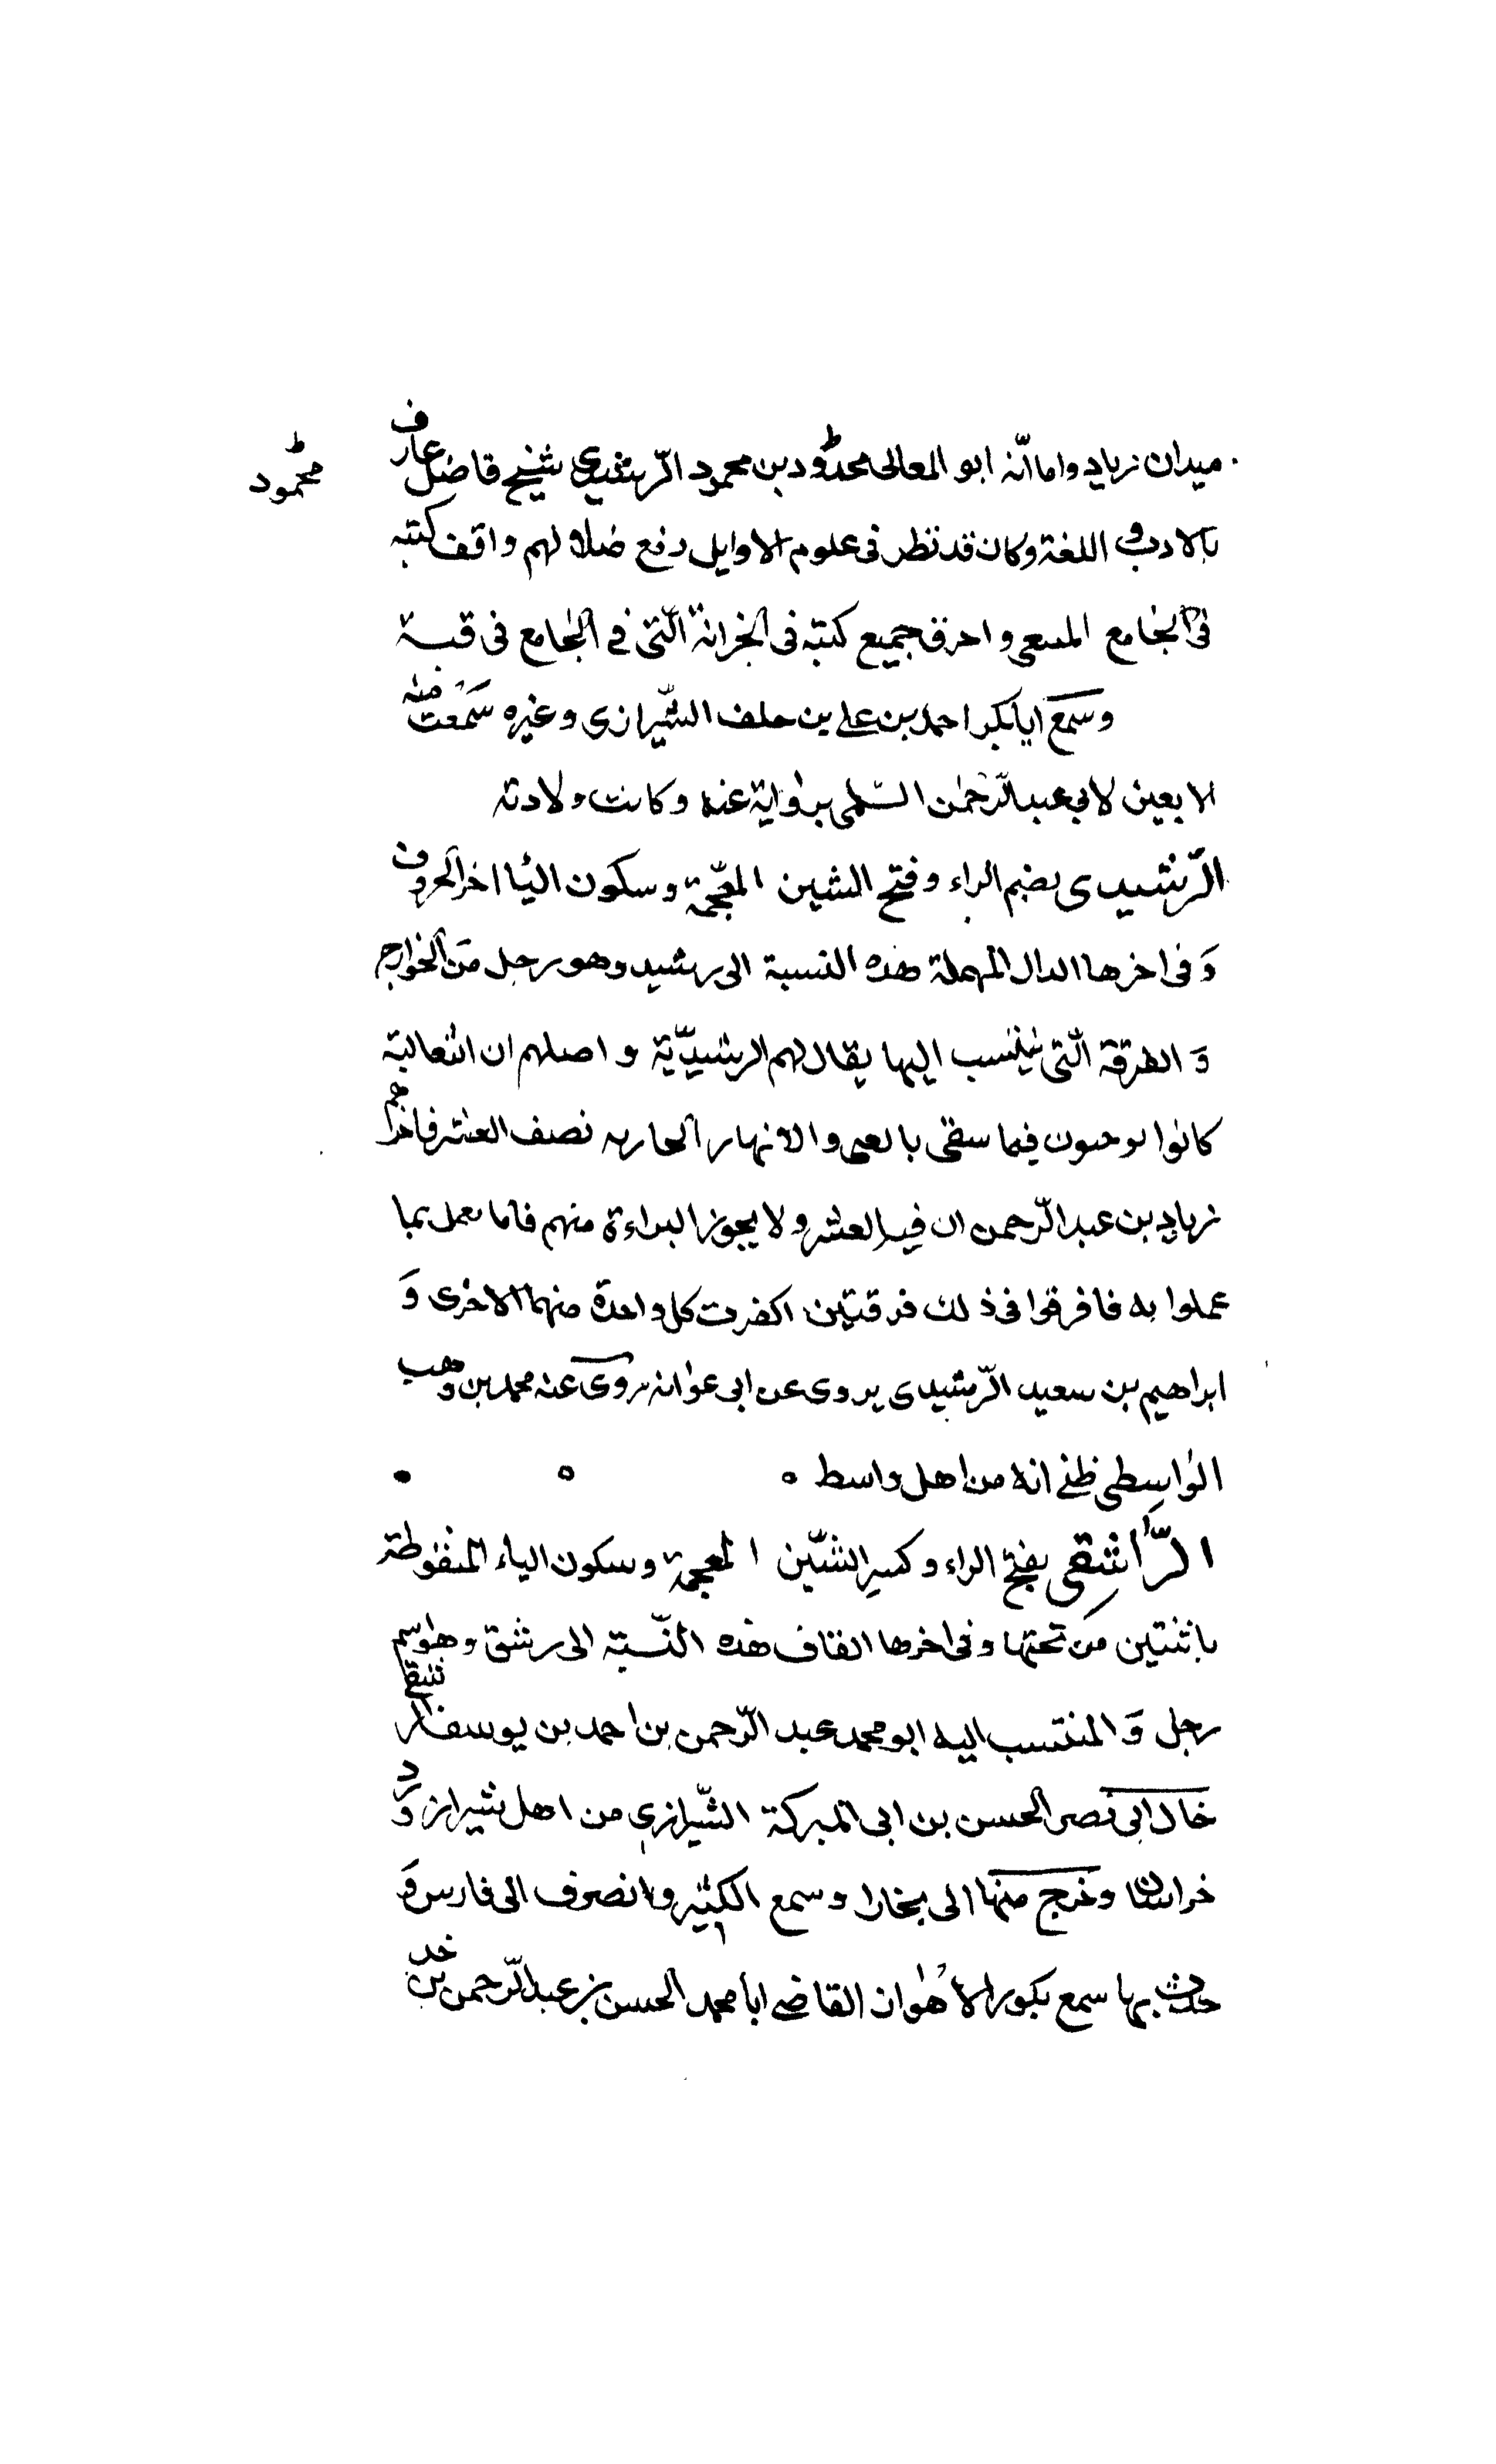 ميدان زياد واما انّه ابو المعالى محمود بن محمود الرّشيدي شيخ فاضل عارف
محمود
بالادب و اللغة وكان قد نظر فى علوم الاوايل دفع ضلالهم واقف كتبه
فى الجامع المسعى واحرق جميع كتبه فى الخزانة الّتى في الجامع فى قبة
وسمع ابا بكر احمد بن على بن خلف الشّيرازى وغيره سَمعت منه
الا بعين لابى عبد الرّحمٰن السّلمى بروٰاية عنه وكانت ولادته
الرّشيدى بضم الراء وفتح الشين المعجّمة وسكون اليا اخر الحروف
وَفى اخرها الدال المهملة هذه النسبة الى رشيد وهو رجل مَن الخوارج
وَ الطرقة الّتى ينسب اليها يقال لهم الرشيديّة و اصلهم ان الثعالبة
كانوا يوجبون فيما سقى بالعيون والانهار الجاريه نصف العشر فاخبرهم
زياد بن عبد الرّحمن ان فيه العشر ولا يجوز البراءة منهم فاما يعمل بما
عملوا به فافرقوا فى ذلك فرقتين اكفرت كل واحدة منهما الاخرى وَ
ابراهيم بن سعيد الرّشيدى يروى عن ابى عوانه روى عنه محمد بن وهب
الوٰاسِطى ظني انه من اهل واسط ه ه •
الرَّاشِقى بفتح الراء وكسر الشّين المعجمة وسكون الياء المنقوطة
باثنتين مَن تحتها وفى اخرها القاف هذه النّسبة الى رشق وهو اسم
رجل وَ المنتسب اليه ابو محمد عبد الرّحمن بن احمد بن يوسف الرشقي
خال ابى نصر الحسن بن ابى المبركة الشّيرازي من اهل شيراز ورد
خراسان وخرج منها الى بخارا وسمع الكثير وانصرف الى فارس وَ
حدث بها سمع بكور الاهْوٰاز القاضي ابا محمد الحسن بن عبد الرّحمن بن خد